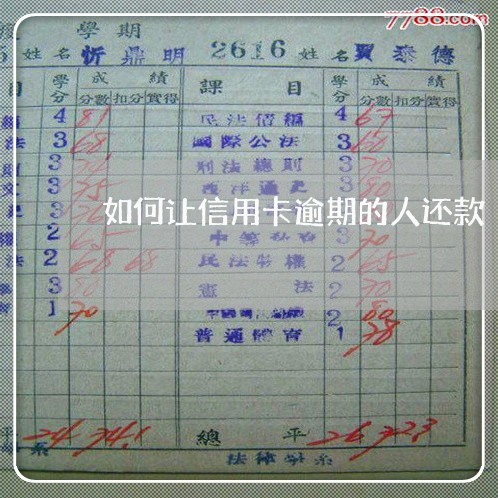 7788.com
學期
姓名 忻鼎明 2616 姓名 賈泰德
目 學分 成績 課目 學分 成績
分數 扣分 實得 分數 扣分 實得
4 81 民法債編 4 67
法 3 68 國際公法 3 60
3 刑法總則 3 70
3 75 西洋通史 3 80
如何让信用卡逾期的人还款
2 65 3 70
法 2 68 68 民法物權 2 65
3 80 憲法 2 70
1 70 2 80
普通體育 1 78
平 24 74.1 總平 26 72.3
系 法律學系